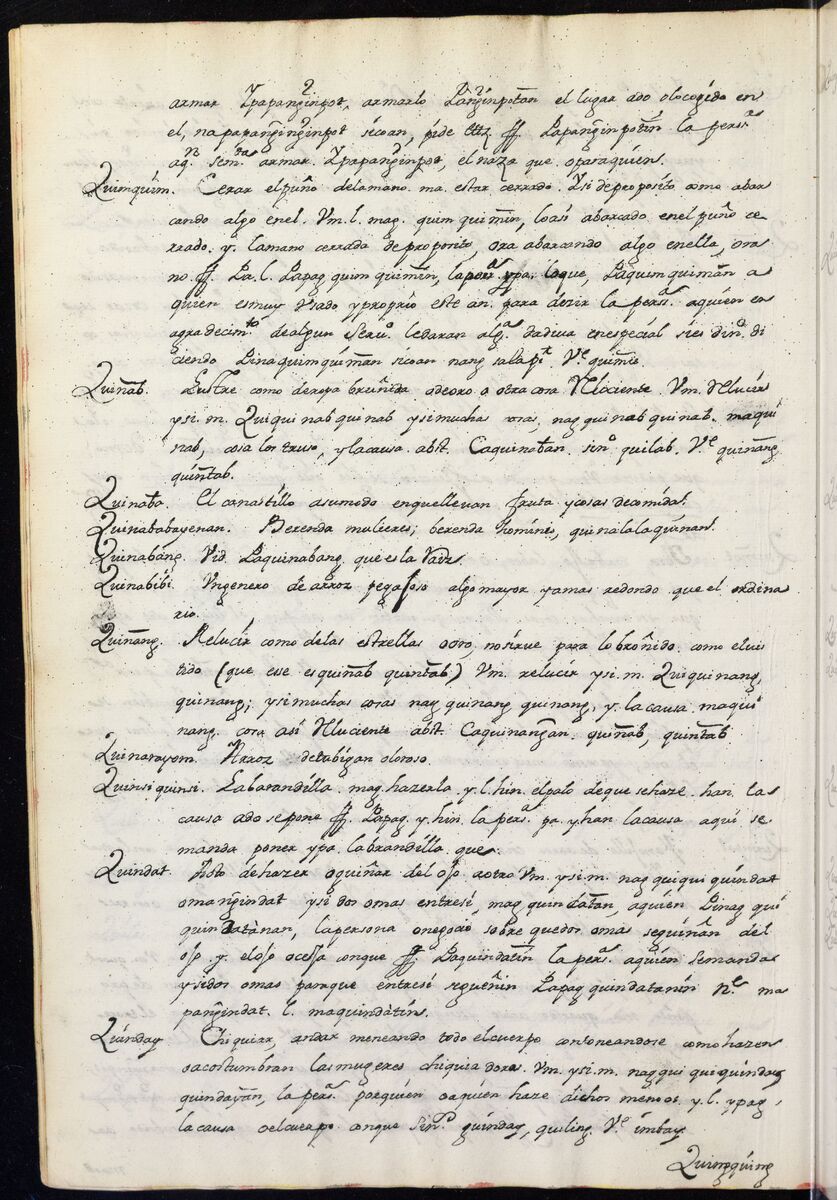 armar Ypapanginpot, armarlo Panginpotan el lugar ado olocogido en
el, napapanginginpot sicoan, pide ettz ff. Papanginpotin la persa
aqn semta armar. Ypapanginpot, el naza que, oparaquien.
Quimquim. Cerar el puño delamano. ma. estar cerrado. Ysi de proposito como abar
cando algo enel. Vm. l. mag. quim quimin, loasi abarcado enel puño ce
rrado. y. lamano cerrada de proposito, ora abarcando algo enella, ora
no. ff. Pa. l. Papag quim quimin, la persa ypa. loque, Paquimquiman a
quien esmuy vsado yproprio este an. para dezir la persa aquien en
agradecimto dealgun seruo ledaran alga dadiua enespecial sies dino di
ciendo Pinaquimquiman sicoan nang salapi. Ve quimis.
Quinab. Lustre como deropa bruñida odeoro o otra cosa Reluciente. Vm. Relucir
ysi. m. Quiquinabquinab ysimuchas cosas, nagquinabquinab. maqui
nab, cosa lostruso, ylacausa abst. Caquinaban. sino quilab. Ve quinang
quintab.
Quinaba. El canastillo asumodo enquellevan fruta ycosas decomidas.
Quinababayenan. Berenda mulieres; berenda hominis, quinalalaquinan.
Quinabang. Vid. Paquinabang. que es la raiz.
Quinabibi. Vngenero de arroz pegajoso algo mayor yamas redondo que el ordina
rio.
Quinang. Relucir como delas estrellas o oro, nosirue para lo broñido como elves
tido (que ese es quinab quintab) Vm. relucir ysi. m. Quiquinang
quinang; ysimuchas cosas nag quinang quinang, y. la causa maqui
nang. cosa asi Reluciente abst. Caquinangan. quinab, quintab
Quinarayom. Arroz detubigan oloroso.
Quinsiquinsi. Labarandilla. mag. hazerla. y. l. hin. elpalo deque sehaze. han. las
causa ado sepone ff. Papag. y. hin. la persa pa. yhan lacausa aqui se
manda poner ypa. labrandilla, que.
Quindat. Acto dehazer oguiñar del ojo aotro Vm. ysi. m. nagquiquiquindat
omangindat ysi dos omas entresi, mag quindatan, aquien Pinag qui
quindatanan, lapersona onegocio sobre quedos omas seguiñan del
ojo. y. elojo ocessa conque ff. Paquindatin la persa aquien semandas
ysidos omas paraque entresi seguiñen Papag quindatanin Ne ma
pangindat. l. maquindatin.
Quinday. Chiquiar, andar meneando todo elcuerpo contoneandose como hazen
oacostumbran las mugeres chiquiadoras. Vm. ysi. m. nagquiquiquinday
quindayan, la persa porquien oaquien haze dichos meneos. y. l. ypag,
la causa oelcuerpo conque Sino guinday, quiling. Ve imbay.
Quingquing